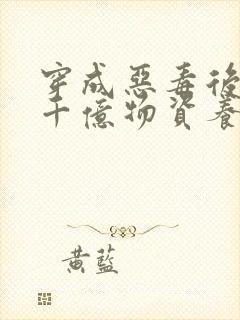 穿成惡毒後
千億物資養
黃藍